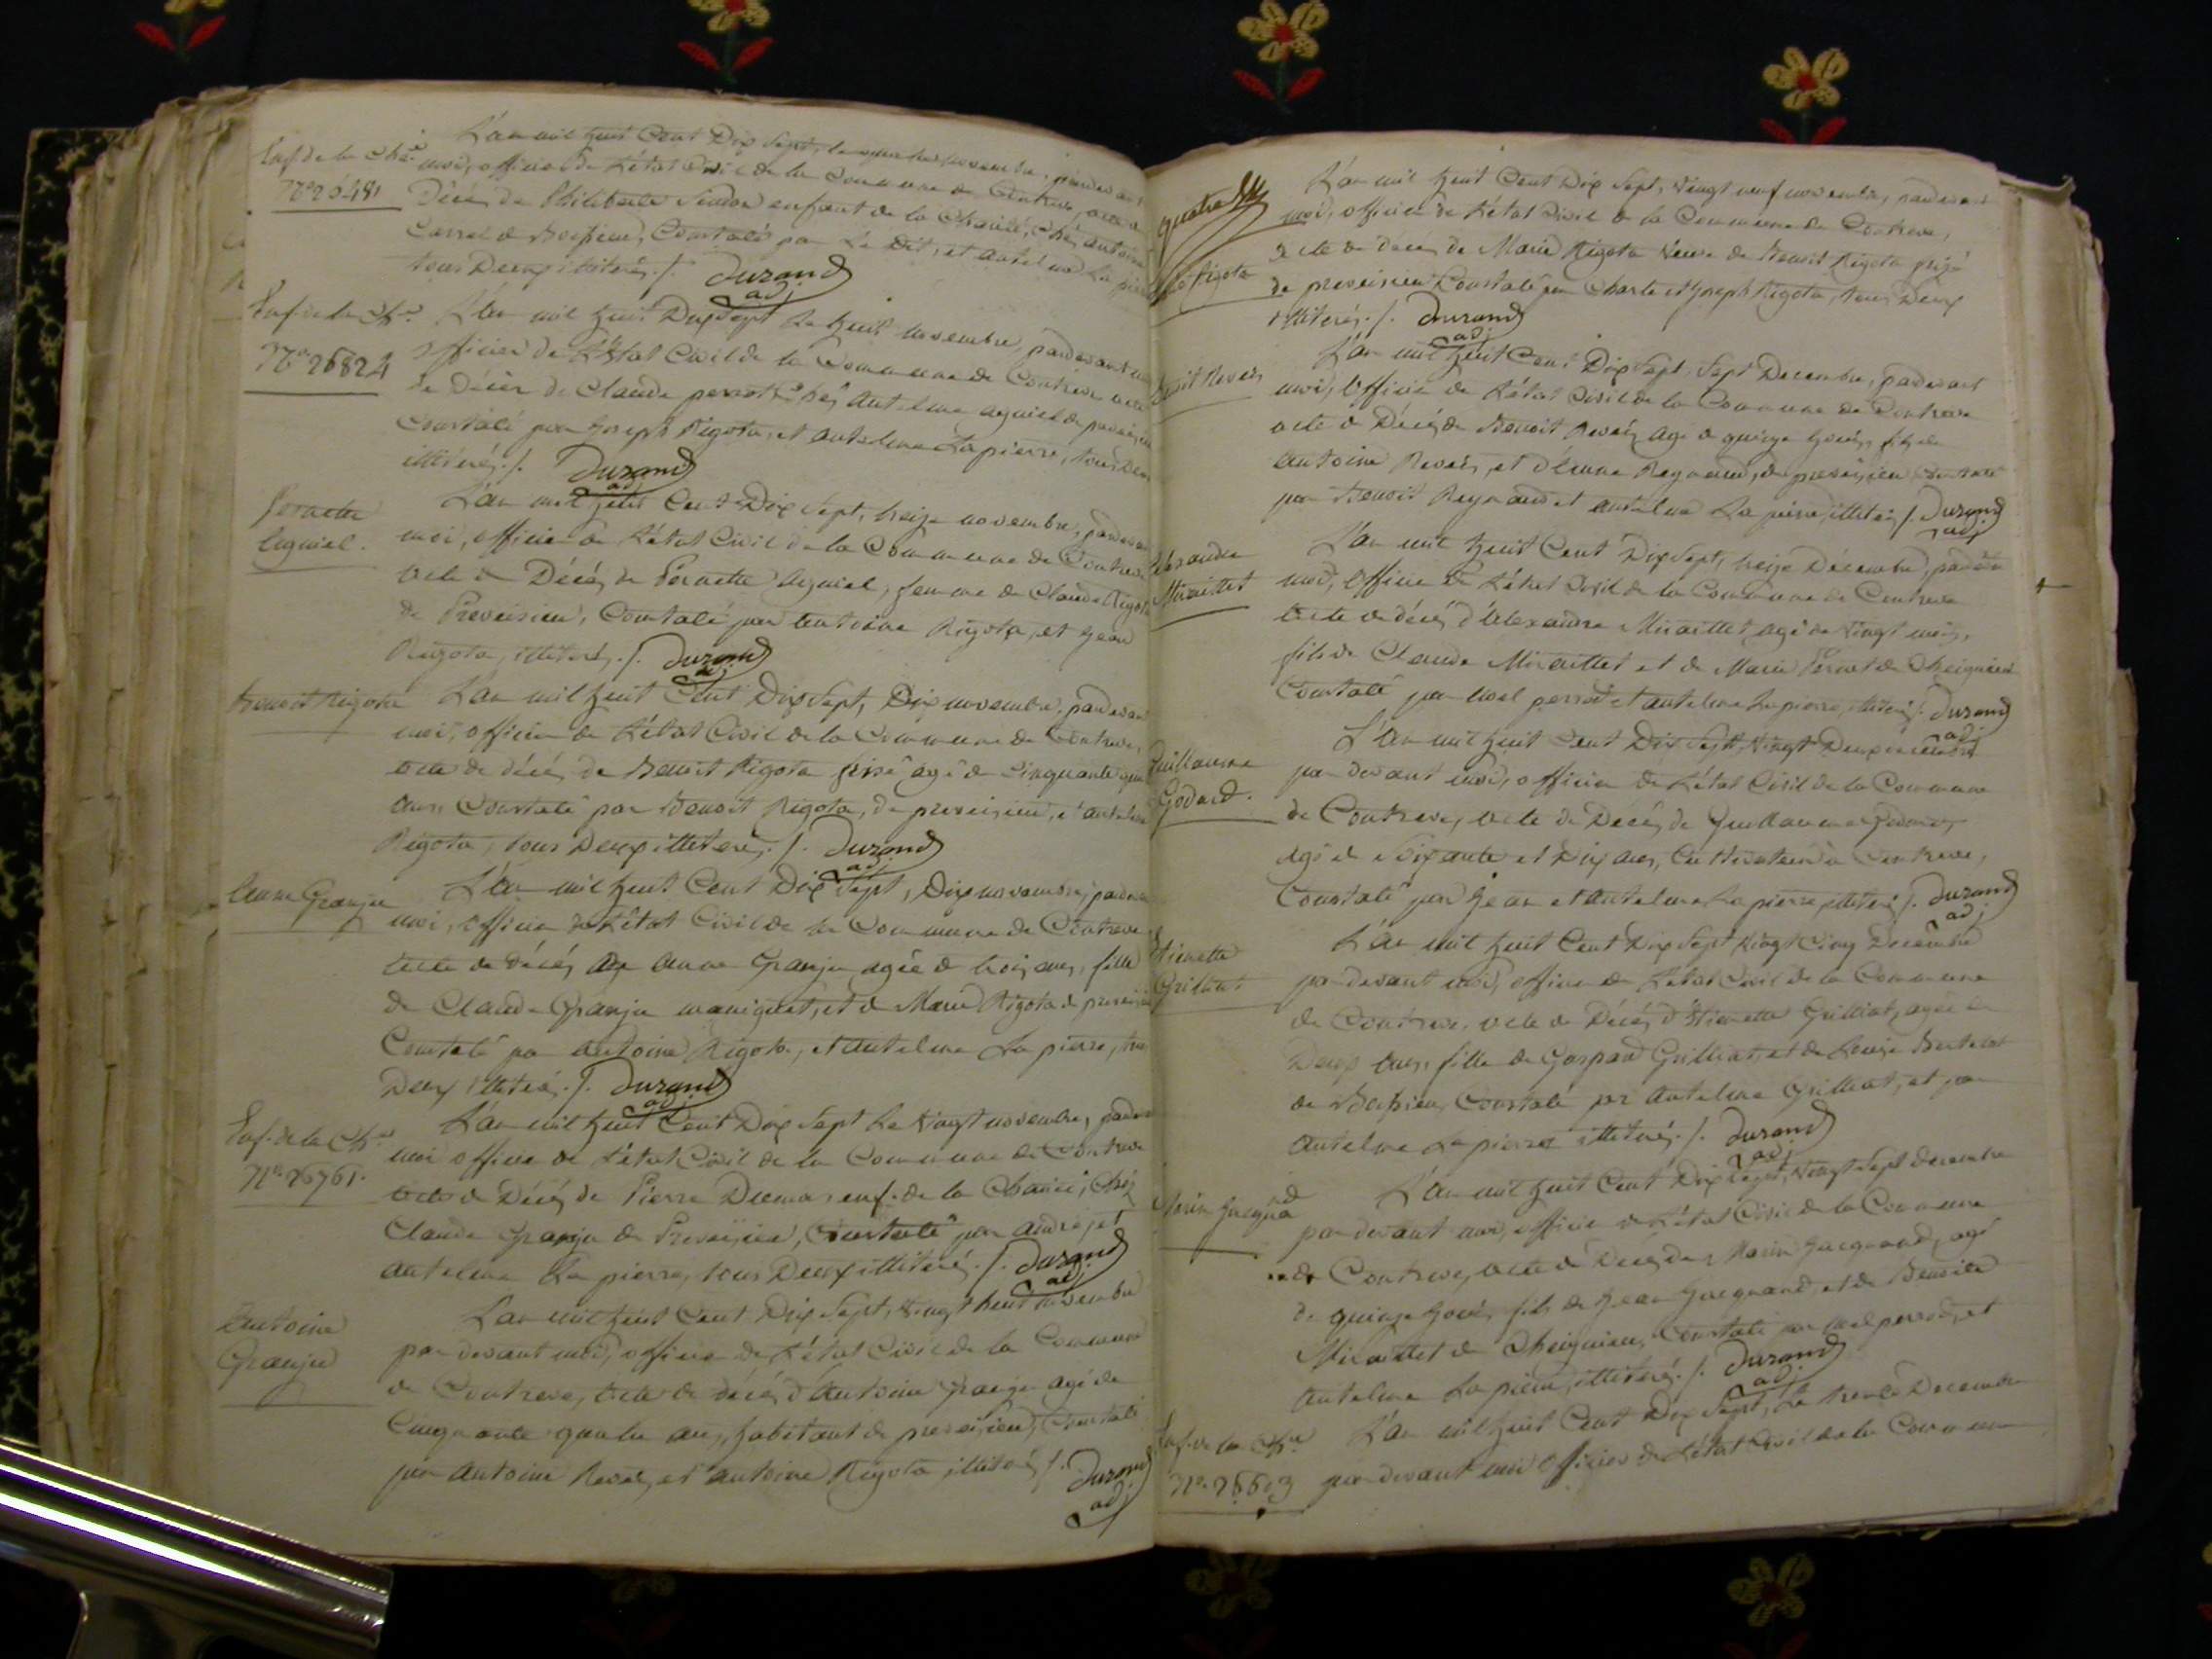 Enf. de la Ch.é
N.o
L'an mil huit Cent Dix Sept, le novembre, pardevant
moi, officier de L'état Civil de la Commune de Contrevoz, acte de
Décès de Philiberte enfant de la Charité, Chez Antoine
Constaté par Le dit, et Antelme La pierre
tous Deux illitérés ./. Durand
adj
Enf. de la Ch.é
N.o 26824
L'an mil huit Dix Sept le huit novembre, pardevant moi
officier de L'état Civil de la Commune de Contrevoz acte
de décès de Claude perrot Chez Antelme de
Constaté par Joseph Rigota, et Antelme La pierre, tous Deux
illitérés ./. Durand
adj
Pernette
L'an mil huit Cent Dix Sept, treize novembre, pardevant
moi, officier de L'état Civil de la Commune de Contrevoz
acte de Décès de Pernette femme de Claude Rigota
de Preveisieu, Constaté par Antoine Rigota, et Jean
Rigota, illitérés ./. Durand
adj
Benoit Rigota
L'an mil huit Cent Dix Sept, Dix novembre, pardevant
moi, officier de L'état Civil de la Commune de Contrevoz,
acte de décès de Benoit Rigota agé de Cinquante
ans, Constaté par Benoit Rigota, de preveisieu, et Antelme
Rigota, tous Deux illiterés ./. Durand
adj
Anne Granju
L'an mil huit Cent Dix Sept, Dix novembre, pardevant
moi, officier de L'état Civil de la Commune de Contrevoz
acte de décès de Anne Granju agée de trois ans, fille
de Claude Granju et de Marie Rigota de preveisieu
Constaté par Antoine Rigota, et Antelme La pierre, tous
Deux illiterés ./. Durand
adj
Enf. de la Ch.é
N.o 26761.
L'an mil huit Cent Dix Sept Le Vingt novembre, pardevant
moi officier de L'état Civil de la Commune de Contrevoz
acte de Décès de Pierre enf. de la Charité, Chez
Claude Granju de Preveisieu, Constaté par André, et
Antelme La pierre, tous Deux illitérés ./. Durand
adj
Antoine
Granju
L'an mil huit Cent Dix Sept, Vingt huit novembre
par devant moi, officier de L'état Civil de la Commune
de Contrevoz, acte de décès d'Antoine Granju agé de
Cinquante quatre ans, habitant de preveisieu, Constaté
par Antoine et Antoine Rigota, illitérés ./.
Durand
adj
quatre
Rigota
L'an mil huit Cent Dix Sept, Vingt neuf novembre, pardevant
moi, officier de L'état Civil de la Commune de Contrevoz,
acte de décès de Marie Rigota Veuve de Benoit Rigota
de preveisieu Constaté par Charle et Joseph Rigota, tous Deux
illiterés ./. Durand
adj
Benoit
L'an mil huit Cent Dix Sept, Sept Decembre, pardevant
moi, Officier de L'état Civil de la Commune de Contrevoz
acte de Décès de Benoit agé de quinze jours, fils de
Antoine et d'Anne Reynaud, de preveisieu Constaté
par Benoit Reynaud et Antelme La pierre, illiterés ./. Durand
adj
Alexandre
Miraillet
L'an mil huit Cent Dix Sept, treize Décembre, pardevant
moi, Officier de L'état Civil de la Commune de Contrevoz
acte de décès d'Alexandre Miraillet, agé de Vingt mois,
fils de Claude Miraillet et de Marie Pernot de Cheignieu
Constaté par Noel perrod et Antelme La pierre, illiterés ./. Durand
adj
Guillaume
Godard.
L'an mil huit Cent Dix Sept, Vingt Deux décembre
par devant moi, officier de L'état Civil de la Commune
de Contrevoz, acte de Décès de Guillaume Godard,
agé de Soixante et Dix ans, Cultivateur à Contrevoz,
Constaté par Jean et Antelme La pierre, illiterés ./. Durand
adj
Etiennette
Grilliat
L'an mil huit Cent Dix Sept Vingt Cinq Decembre
par devant moi, officier de L'état Civil de la Commune
de Contrevoz, acte de Décès d'Etiennette Grilliat, agée de
Deux ans, fille de Gaspard Grilliat, et de Louise
de Boissieu, Constaté par Antelme Grilliat, et par
Antelme La pierre illiterés ./. Durand
adj
Marin Jacquand
L'an mil huit Cent Dix Sept, Vingt Sept decembre
par devant moi, officier de L'état Civil de la Commune
de Contrevoz, acte de Décès de Marin Jacquand, agé
de quinze jours, fils de Jean Jacquand, et de Benoite
Miraillet de Cheignieu, Constaté par Noel perrod, et
Antelme La pierre, illiterés ./. Durand
adj
Enf. de la Ch.é
N.o
L'an mil huit Cent Dix Sept, Le trente Decembre
par devant moi Officier de L'état Civil de la Commune